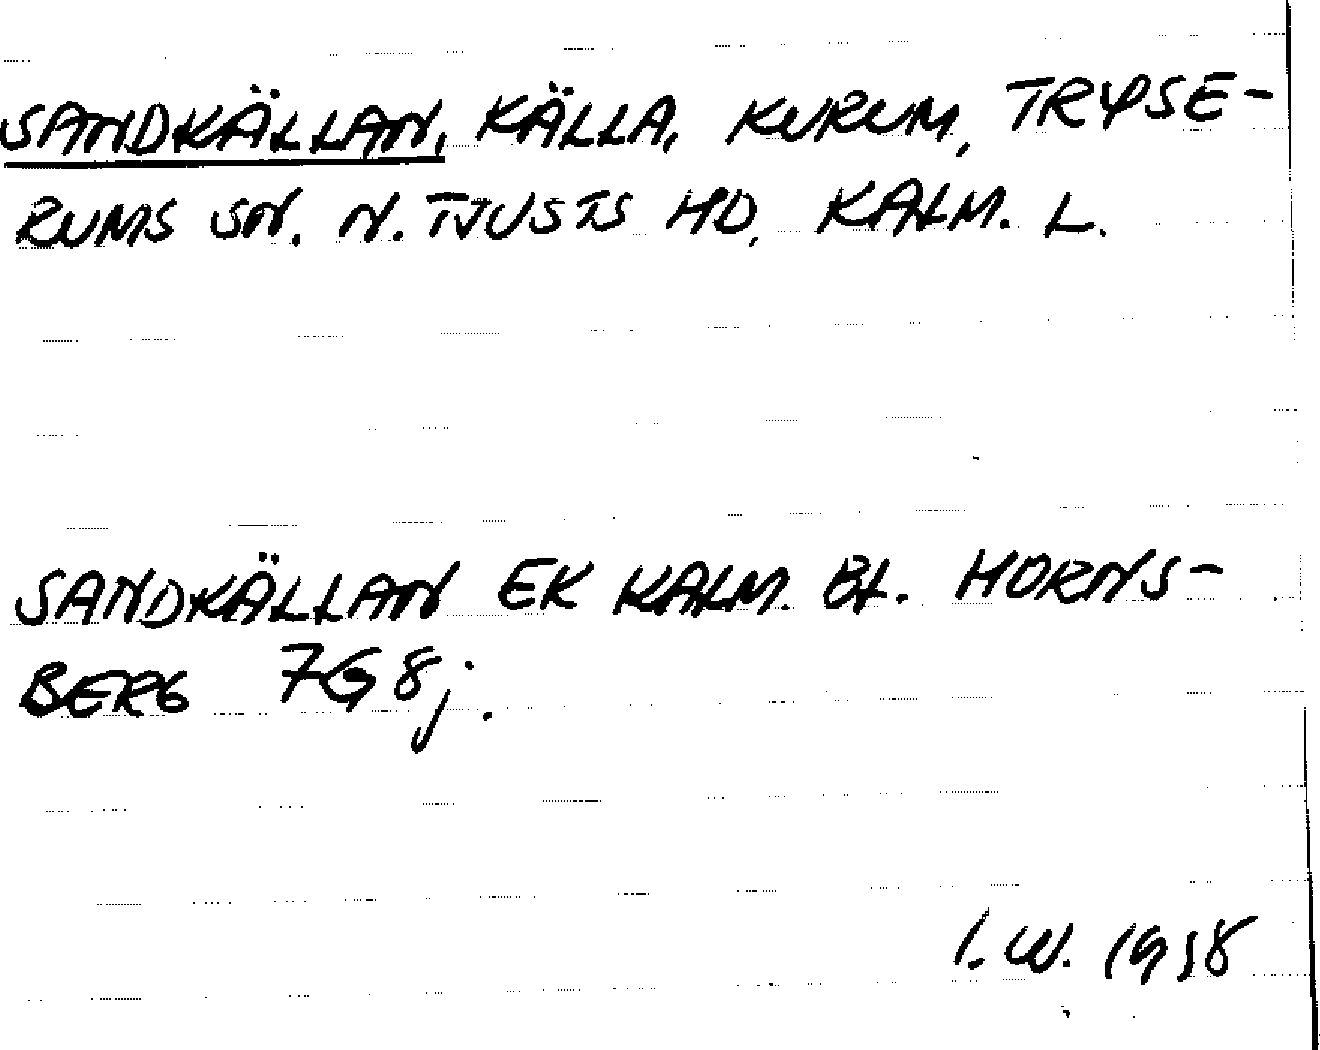 SANDKÄLLAN, KÄLLA, KURUM, TRYSE-
RUMS SN. N. TJUSTS HD, KALM. L.
SANDKÄLLAN EK KALM. BL. HORNS-
BERG 7G8j.
I.W. 1958